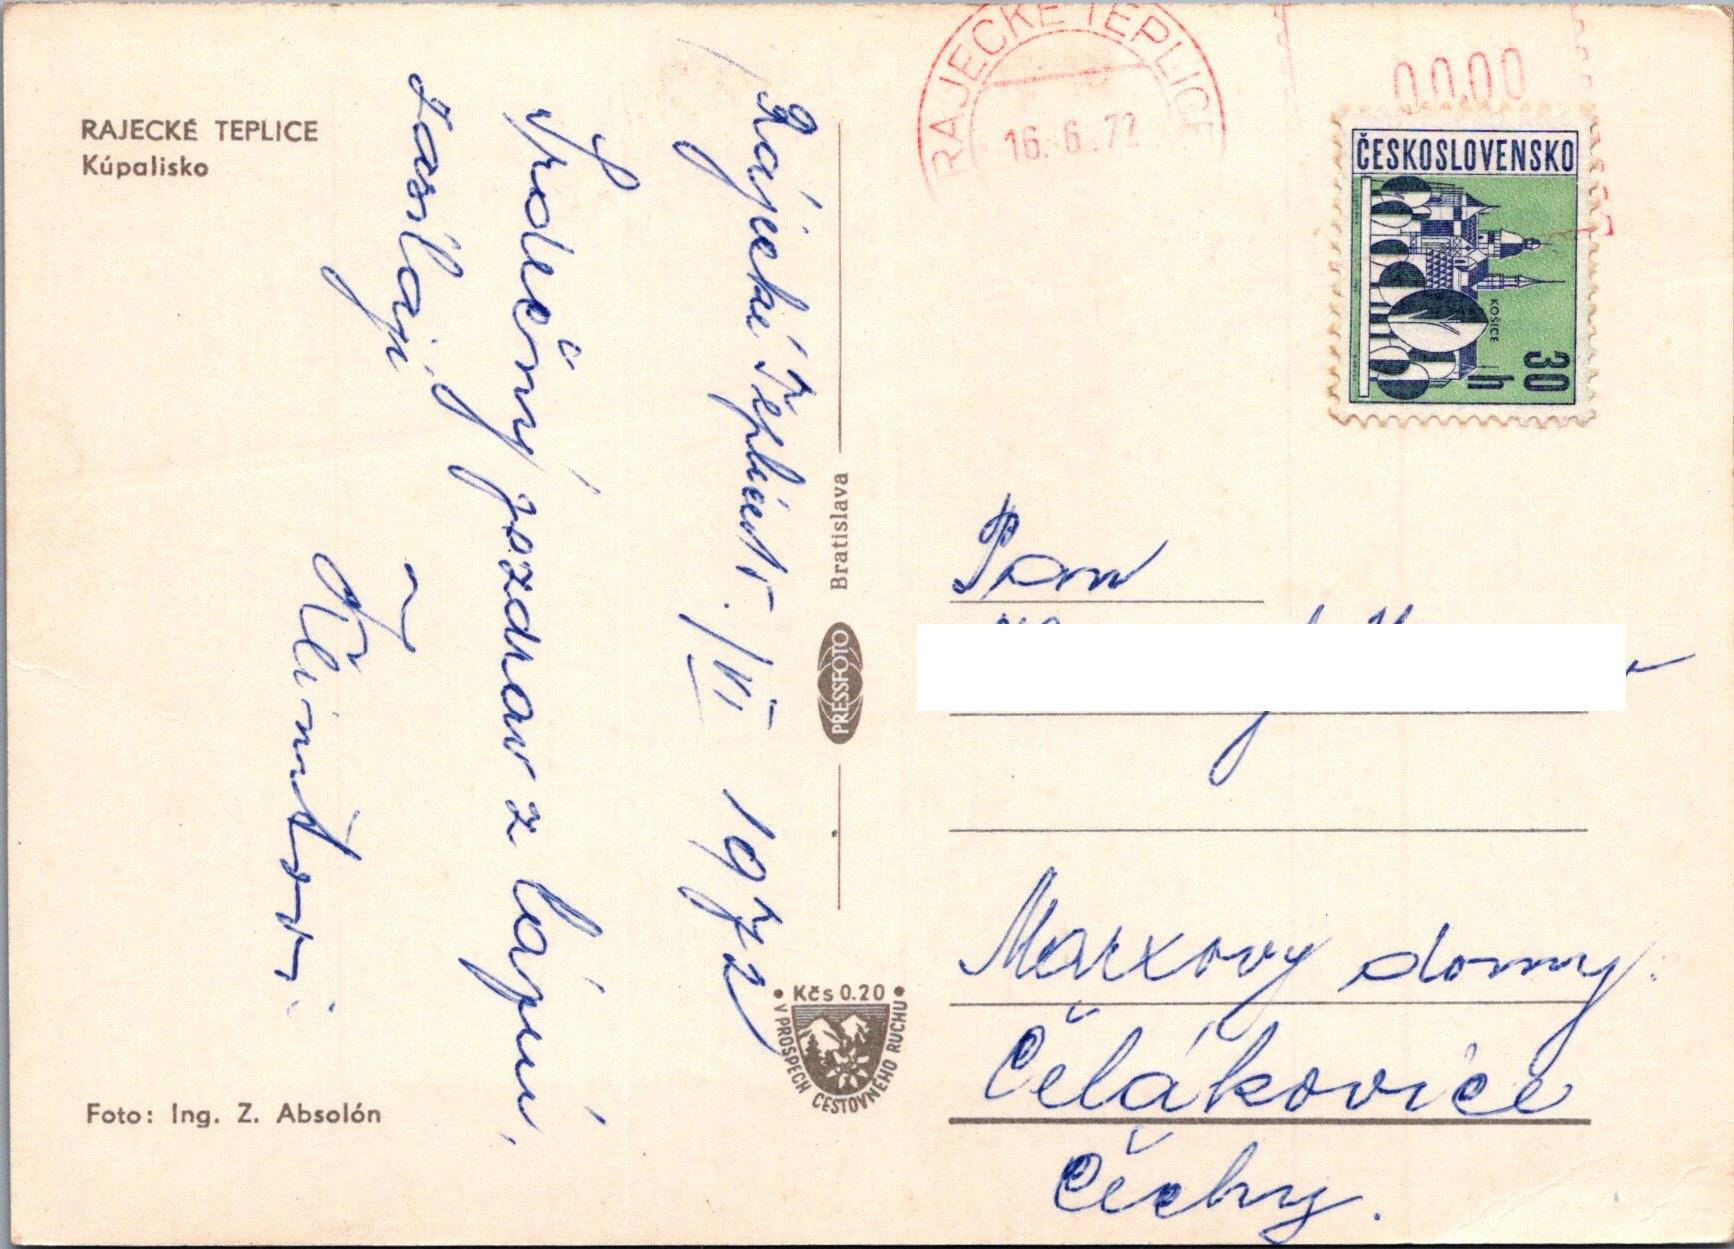 RAJECKÉ TEPLICE
Kúpalisko
Rájecké Teplice 15./VI 1972
Srdečný pozdrav z lázní,
zasílají
Foto: Ing. Z. Absolón
Bratislava
PRESSFOTO
• Kčs 0.20 •
V PROSPECH CESTOVNÉHO RUCHU
RAJECKÉ TEPLICE
16.-6.72
0000
ČESKOSLOVENSKO
KOŠICE
30 h
Pan
Marxovy domy.
Čelákovice
Čechy.